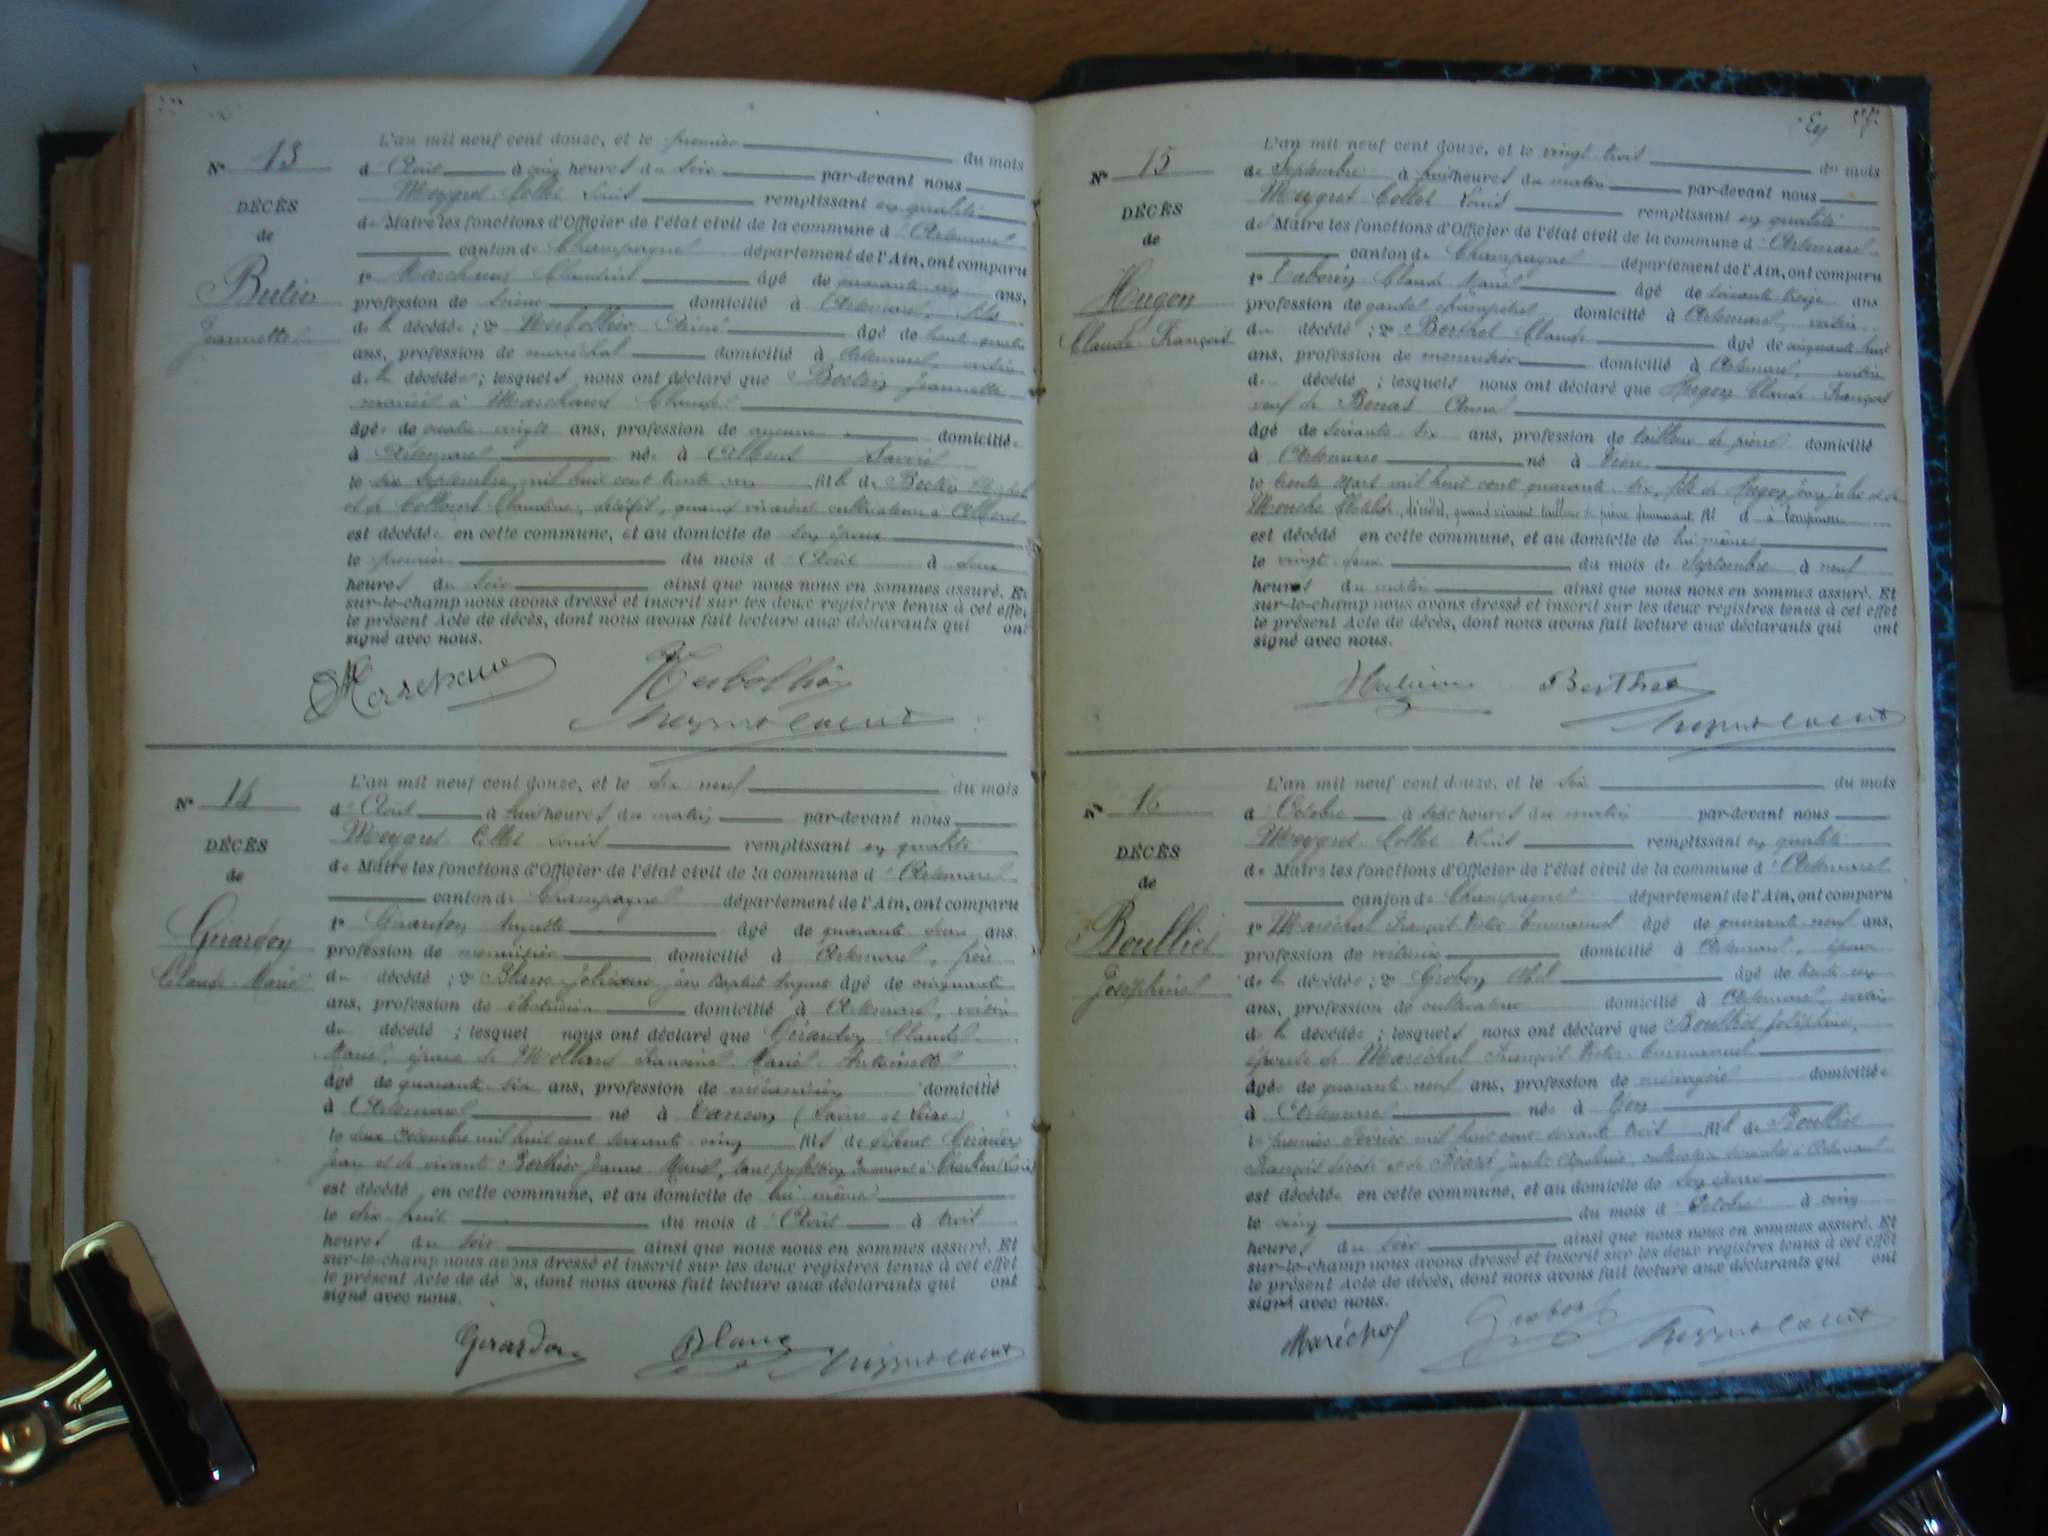 L'an mil neuf cent douze, et le premier du mois
N° 13
d'Août à cinq heures du soir par-devant nous
Meygret-Collet Louis remplissant en qualité
DÉCÈS
de Maire les fonctions d'Officier de l'état civil de la commune d'Artemare
de
canton de Champagne département de l'Ain, ont comparu
1° Claudius âgé de quarante ans,
Jeannette
profession de domicilié à Artemare, fils
de la décédée ; 2° âgé de trente quatre
ans, profession de maréchal domicilié à Artemare, voisin
de la décédée ; lesquels nous ont déclaré que Jeannette
mariée à Claude
âgée de quatre-vingts ans, profession de aucune domiciliée
à Artemare née à Savoie
le six Septembre mil huit cent trente un fille de
et de Claudine, décédés, cultivateurs à
est décédée en cette commune, et au domicile de son époux
le premier du mois d'Août à deux
heures du soir ainsi que nous nous en sommes assuré. Et
sur-le-champ nous avons dressé et inscrit sur les deux registres tenus à cet effet
le présent Acte de décès, dont nous avons fait lecture aux déclarants qui ont
signé avec nous.
L'an mil neuf cent douze, et le dix neuf du mois
N° 14
d'Août à huit heures du matin par-devant nous
Meygret-Collet Louis remplissant en qualité
DÉCÈS
de Maire les fonctions d'Officier de l'état civil de la commune d'Artemare
de
canton de Champagne département de l'Ain, ont comparu
Girardon
1° Girardon Auguste âgé de quarante ans.
Claude-Marie
profession de menuisier domicilié à Artemare, frère
du décédé ; 2° Blanc Jean Baptiste Auguste âgé de cinquante
ans, profession de électricien domicilié à Artemare, voisin
du décédé ; lesquel nous ont déclaré que Girardon Claude
Marie, époux de Francine Marie Antoinette
âgé de quarante six ans, profession de mécanicien domicilié
à Artemare né à (Saône et Loire)
le deux Décembre mil huit cent soixante cinq fils de Girardon
Jean et de vivant Berthier Jeanne Marie, sans profession
est décédé en cette commune, et au domicile de lui-même
le dix huit du mois d'Août à trois
heures du soir ainsi que nous nous en sommes assuré. Et
sur-le-champ nous avons dressé et inscrit sur les deux registres tenus à cet effet
le présent Acte de décès, dont nous avons fait lecture aux déclarants qui ont
signé avec nous.
Girardon Blanc
L'an mil neuf cent douze, et le vingt trois du mois
N° 15
de Septembre à huit heures du matin par-devant nous
Meygret-Collet Louis remplissant en qualité
DÉCÈS
de Maire les fonctions d'Officier de l'état civil de la commune d'Artemare
de
canton de Champagne département de l'Ain, ont comparu
Hugon
1° Claude Marie âgé de soixante-treize ans
Claude-François
profession de garde champêtre domicilié à Artemare, voisin
du décédé ; 2° Berthet Claude âgé de cinquante huit
ans, profession de menuisier domicilié à Artemare, voisin
du décédé ; lesquels nous ont déclaré que Hugon Claude-François
veuf de
âgé de soixante six ans, profession de tailleur de pierre domicilié
à Artemare né à
le trente Mars mil huit cent quarante six, fils de Hugon et de
décédés, quand vivaient tailleur de pierre
est décédé en cette commune, et au domicile de lui-même
le vingt deux du mois de Septembre à neuf
heures du matin ainsi que nous nous en sommes assuré. Et
sur-le-champ nous avons dressé et inscrit sur les deux registres tenus à cet effet
le présent Acte de décès, dont nous avons fait lecture aux déclarants qui ont
signé avec nous.
Berthet
L'an mil neuf cent douze, et le six du mois
N° 16
d'Octobre à heures du matin par-devant nous
Meygret-Collet Louis remplissant en qualité
DÉCÈS
de Maire les fonctions d'Officier de l'état civil de la commune d'Artemare
de
canton de Champagne département de l'Ain, ont comparu
Boulliet
1° Maréchal François Victor Emmanuel âgé de quarante neuf ans,
Joséphine
profession de domicilié à Artemare, époux
de la décédée ; 2° âgé de trente
ans, profession de cultivateur domicilié à Artemare, voisin
de la décédée ; lesquels nous ont déclaré que Boulliet Joséphine,
épouse de Maréchal François Victor Emmanuel
âgée de quarante neuf ans, profession de ménagère domiciliée
à Artemare née à
le premier Février mil huit cent soixante trois fille de Boulliet
François décédé et de
est décédée en cette commune, et au domicile de son époux
le cinq du mois d'Octobre à cinq
heures du soir ainsi que nous nous en sommes assuré. Et
sur-le-champ nous avons dressé et inscrit sur les deux registres tenus à cet effet
le présent Acte de décès, dont nous avons fait lecture aux déclarants qui ont
signé avec nous.
Maréchal